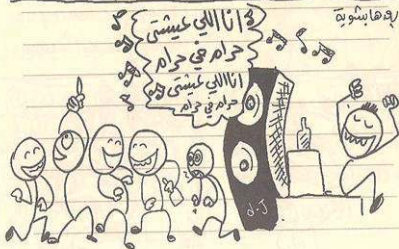 بعدها بشوية
انا اللي عيشتى
حرام في حرام
انا اللي عيشتى
حرام في حرام
d.J